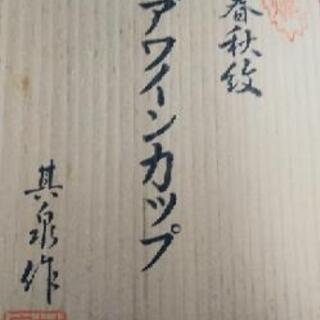 春秋紋
アワインカップ
其泉作